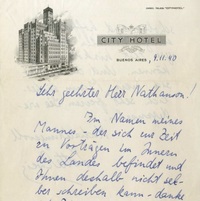 CITY HOTEL
BUENOS AIRES, 9.11.40
Sehr geehrter Herr Nathanson!
Im Namen meines
Mannes - der sich zur Zeit
zu Vorträgen im Innern
des Landes befindet und
Ihnen deshalb nicht sel-
ber schreiben kann - danke